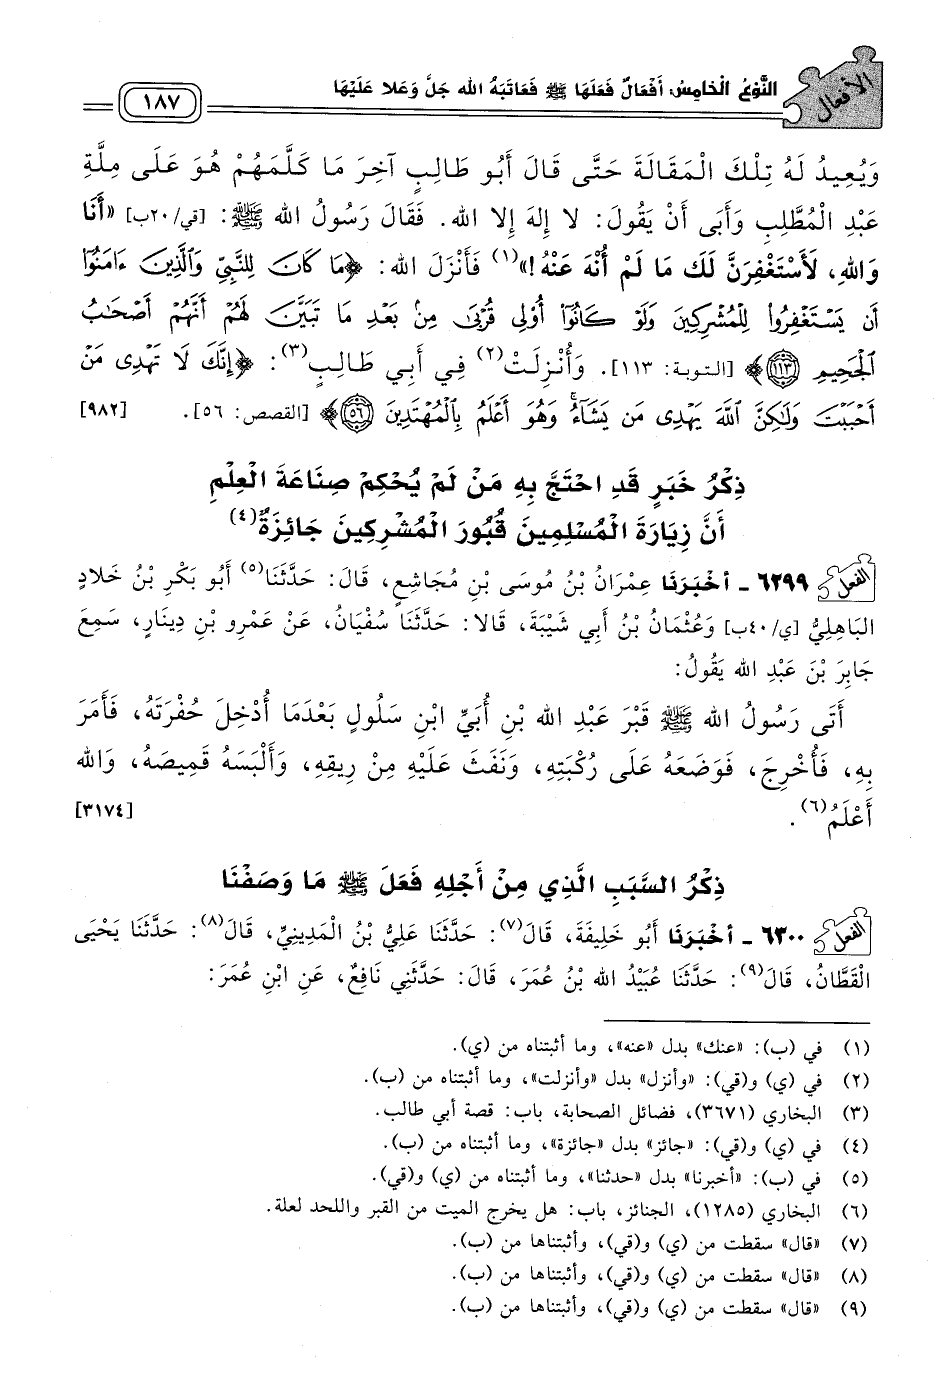 الأفعال
النَّوْعُ الْخَامِسُ: أَفْعَالٌ فَعَلَهَا ﷺ فَعَاتَبَهُ الله جَلَّ وَعَلا عَلَيْهَا
١٨٧
وَيُعِيدُ لَهُ تِلْكَ الْمَقَالَةَ حَتَّى قَالَ أَبُو طَالِبٍ آخِرَ مَا كَلَّمَهُمْ هُوَ عَلَى مِلَّةِ
عَبْدِ الْمُطَّلِبِ وَأَبَى أَنْ يَقُولَ: لا إِلهَ إِلا الله. فَقَالَ رَسُولُ الله ﷺ: [قي/٢٠ب] «أَنَا
وَاللهِ، لَأَسْتَغْفِرَنَّ لَكَ مَا لَمْ أُنْهَ عَنْهُ!»(١) فَأَنْزَلَ الله: ﴿مَا كَانَ لِلنَّبِيِّ وَالَّذِينَ ءَامَنُوٓا
أَن يَسْتَغْفِرُوا لِلْمُشْرِكِينَ وَلَوْ كَانُوٓا أُوْلِي قُرْبَى مِنۢ بَعْدِ مَا تَبَيَّنَ لَهُمْ أَنَّهُمْ أَصْحَٰبُ
الْجَحِيمِ ١١٣﴾ [التوبة: ١١٣]. وَأُنْزِلَتْ(٢) فِي أَبِي طَالِبٍ(٣): ﴿إِنَّكَ لَا تَهْدِى مَنْ
أَحْبَبْتَ وَلَٰكِنَّ اللَّهَ يَهْدِى مَن يَشَآءُ وَهُوَ أَعْلَمُ بِالْمُهْتَدِينَ ٥٦﴾ [القصص: ٥٦]. [٩٨٢]
ذِكْرُ خَبَرٍ قَدِ احْتَجَّ بِهِ مَنْ لَمْ يُحْكِمْ صِنَاعَةَ الْعِلْمِ
أَنَّ زِيَارَةَ الْمُسْلِمِينَ قُبُورَ الْمُشْرِكِينَ جَائِزَةٌ(٤)
الفعل ٦٢٩٩ - أَخْبَرَنَا عِمْرَانُ بْنُ مُوسَى بْنِ مُجَاشِعٍ، قَالَ: حَدَّثَنَا(٥) أَبُو بَكْرِ بْنُ خَلادٍ
البَاهِلِيُّ [ي/٤٠ب] وَعُثْمَانُ بْنُ أَبِي شَيْبَةَ، قَالا: حَدَّثَنَا سُفْيَانُ، عَنْ عَمْرِو بْنِ دِينَارٍ، سَمِعَ
جَابِرَ بْنَ عَبْدِ الله يَقُولُ:
أَتَى رَسُولُ الله ﷺ قَبْرَ عَبْدِ الله بْنِ أُبَيٍّ ابْنِ سَلُولٍ بَعْدَمَا أُدْخِلَ حُفْرَتَهُ، فَأَمَرَ
بِهِ، فَأُخْرِجَ، فَوَضَعَهُ عَلَى رُكْبَتِهِ، وَنَفَثَ عَلَيْهِ مِنْ رِيقِهِ، وَأَلْبَسَهُ قَمِيصَهُ، وَالله
أَعْلَمُ(٦). [٣١٧٤]
ذِكْرُ السَّبَبِ الَّذِي مِنْ أَجْلِهِ فَعَلَ ﷺ مَا وَصَفْنَا
الفعل ٦٣٠٠ - أَخْبَرَنَا أَبُو خَلِيفَةَ، قَالَ(٧): حَدَّثَنَا عَلِيُّ بْنُ الْمَدِينِيِّ، قَالَ(٨): حَدَّثَنَا يَحْيَى
الْقَطَّانُ، قَالَ(٩): حَدَّثَنَا عُبَيْدُ الله بْنُ عُمَرَ، قَالَ: حَدَّثَنِي نَافِعٌ، عَنِ ابْنِ عُمَرَ:
(١) في (ب): «عنك» بدل «عنه»، وما أثبتناه من (ي).
(٢) في (ي) و(قي): «وأنزل» بدل «وأنزلت»، وما أثبتناه من (ب).
(٣) البخاري (٣٦٧١)، فضائل الصحابة، باب: قصة أبي طالب.
(٤) في (ي) و(قي): «جائز» بدل «جائزة»، وما أثبتناه من (ب).
(٥) في (ب): «أخبرنا» بدل «حدثنا»، وما أثبتناه من (ي) و(قي).
(٦) البخاري (١٢٨٥)، الجنائز، باب: هل يخرج الميت من القبر واللحد لعلة.
(٧) «قال» سقطت من (ي) و(قي)، وأثبتناها من (ب).
(٨) «قال» سقطت من (ي) و(قي)، وأثبتناها من (ب).
(٩) «قال» سقطت من (ي) و(قي)، وأثبتناها من (ب).